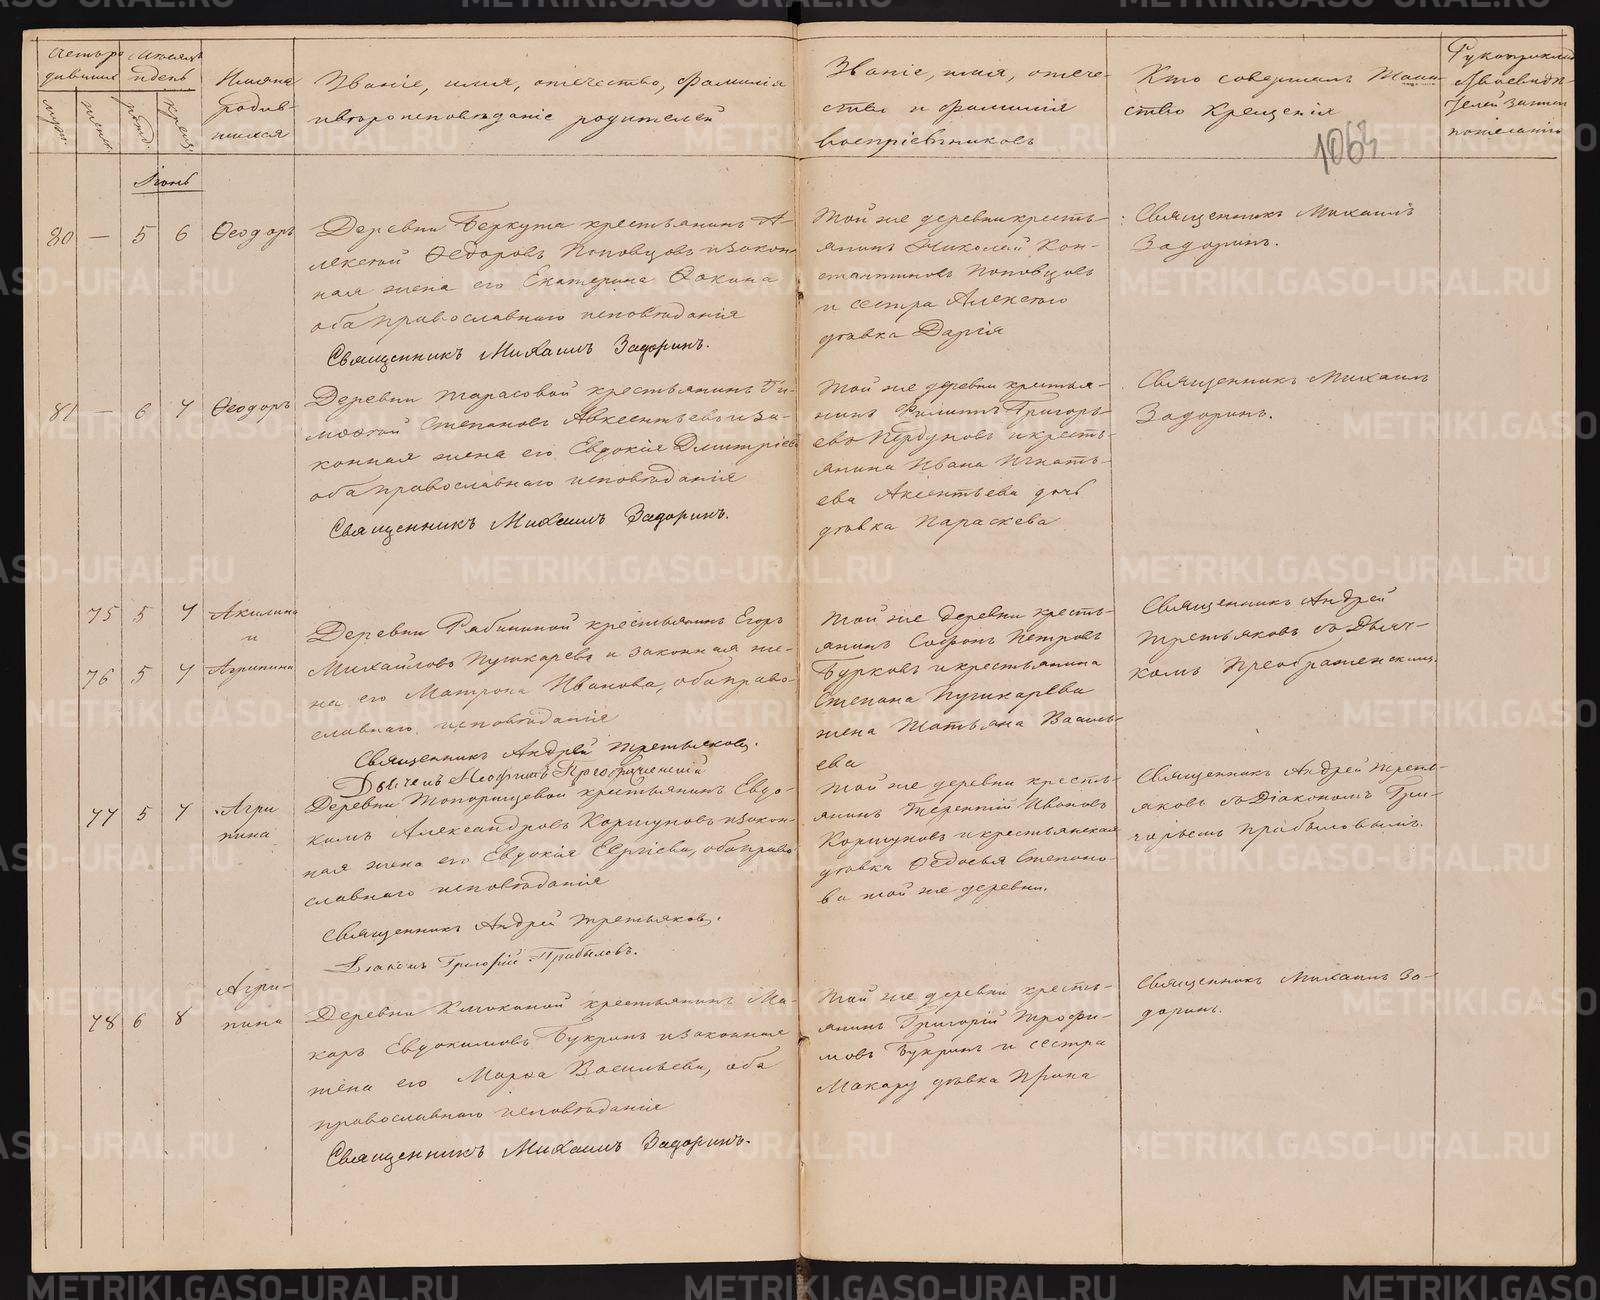 Счетъ родившихся
Мѣсяцъ и день
муж.
жен.
рожд.
крещ.
Имяна родившихся
Званіе, имя, отечество, фамилія
и вѣроисповѣданіе родителей
Званіе, имя, отече-
ство и фамилія
воспріемниковъ
Кто совершалъ Таин-
ство Крещенія
Рукоприклад
свидѣ-
телей записи
по желанію
1064
Іюнь
80 — 5 6 Ѳеодоръ
Деревни Беркута крестьянинъ А-
лексѣй Ѳедоровъ Поповцовъ и закон-
ная жена его Екатерина Ѳокина
оба православнаго исповѣданія
Священникъ Михаилъ Задоринъ.
Той же деревни кресть-
янинъ Николай Кон-
стантиновъ Поповцовъ
и сестра Алексѣю
дѣвка Дарія
Священникъ Михаилъ
Задоринъ.
81 — 6 7 Ѳеодоръ
Деревни Тарасовой крестьянинъ Ти-
моѳей Степановъ Авксентьевъ и за-
конная жена его Евдокія Дмитріева
оба православнаго исповѣданія
Священникъ Михаилъ Задоринъ.
Той же деревни крестья-
нинъ Филиппъ Григорь-
евъ и кресть-
янина Ивана Игнать-
ева Аксентьева дочь
дѣвка Параскева
Священникъ Михаилъ
Задоринъ.
75 5 7 Акилина
и
76 5 7 Агрипина
Деревни Рябининой крестьянинъ Егоръ
Михайловъ Пушкаревъ и законная же-
на его Матрона Иванова, оба право-
славнаго исповѣданія
Священникъ Андрей Третьяковъ.
Дьячекъ Неофитъ Преображенскій
Той же деревни кресть-
янинъ Софонъ Петровъ
Бурковъ и крестьянина
Степана Пушкарева
жена Татьяна Василь-
ева
Священникъ Андрей
Третьяковъ съ Дьяч-
комъ Преображенскимъ.
77 5 7 Агри
пина
Деревни Топорищевой крестьянинъ Евдо-
кимъ Александровъ Коршуновъ и закон-
ная жена его Евдокія Сергіева, оба право
славнаго исповѣданія
Священникъ Андрей Третьяковъ.
Діаконъ Григорій Прибыловъ.
Той же деревни кресть-
янинъ Терентій Ивановъ
Коршуновъ и крестьянская
дѣвка Ѳедосья Степано-
ва той же деревни.
Священникъ Андрей Треть-
яковъ съ Діакономъ Гри-
горьемъ Прибыловымъ.
78 6 8 Агри-
пина
Деревни Клюкиной крестьянинъ Ма-
каръ Евдокимовъ Букринъ и законная
жена его Марѳа Васильева, оба
православнаго исповѣданія
Священникъ Михаилъ Задоринъ.
Той же деревни кресть-
янинъ Григорій Трофи-
мовъ Букринъ и сестра
Макару дѣвка Ирина
Священникъ Михаилъ За-
доринъ.
METRIKI.GASO-URAL.RU